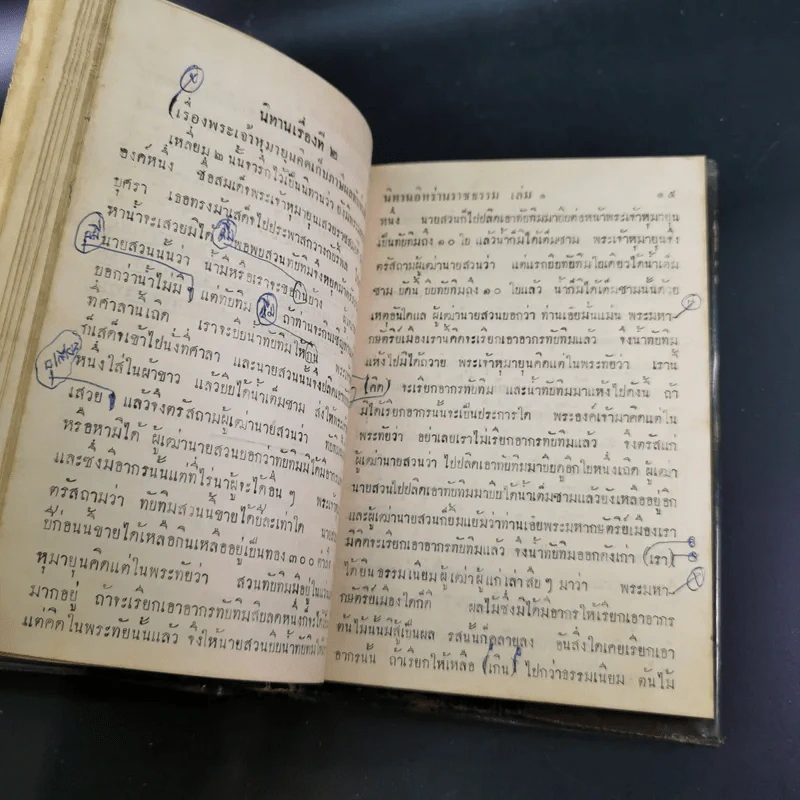 นิทานเรื่องที่ ๒
(เรื่องพระเจ้าหุมายุนคิดเก็บภาษีผลทับทิม
เหลี่ยม ๒ นั้นจาริกไว้เป็นนิทานว่า ยังมีพระมหา
องค์หนึ่ง ชื่อสมเด็จพระเจ้าหุมายุนเสวยราชย์
บุศรา เธอทรงม้าเสด็จไปประพาสกวางกับริ้พล
หาน้ำจะเสวยมิได้ พอพบสวนทับทิมจึงหยุดม้า
นายสวนนั้นว่า น้ำมีหรือเราจะซอกินบ้าง
บอกว่าน้ำไม่มี แต่ทับทิม มี ถ้าท่านจะกิน
ที่ศาลานั้เถิด เราจะบิบน้ำทับทิมให้กิน
ก็เสด็จเข้าไปนั่งที่ศาลา และนายสวนนั้นจึงปลิดเอา
หนึ่งใส่ในผ้าขาว แล้วบิบได้น้ำเต็มชาม ส่งให้
เสวย แล้วจึงตรัสถามผู้เฒ่านายสวนว่า
หรือหามิได้ ผู้เฒ่านายสวนบอกว่าทับทิมมิได้มีอากร
และซึ่งมีอากรนั้นแต่ที่ไร่นาผู้จะได้อื่นๆ
ตรัสถามว่า ทับทิมสวนนี้ขายได้ปีละเท่าใด
ปีก่อนนั้นขายได้เหลือกินเหลืออยู่เป็นทอง ๓๐๐ ตำลึง
หุมายุนคิดแต่ในพระทัยว่า สวนทับทิมมีอยู่ใน
มากอยู่ ถ้าจะเรียกเอาอากรทับทิมสิบลดหนึ่งก็จะได้
แต่คิดในพระทัยนั้นแล้ว จึงให้นายสวนบิบน้ำทับทิม
นิทานอิหร่านราชธรรม เล่ม ๑ ๑๕
หนึ่ง นายสวนก็ไปปลิดเอาทับทิมมาบิบต่อหน้าพระเจ้าหุมายุน
เป็นทับทิมถึง ๑๐ ใบ แล้วน้ำก็มิได้เต็มชาม พระเจ้าหุมายุนจึง
ตรัสถามผู้เฒ่านายสวนว่า แต่แรกบิบทับทิมใบเดียวได้น้ำเต็ม
ชาม บัดนี้ บิบทับทิมถึง ๑๐ ใบแล้ว น้ำก็มิได้เต็มชามนั้นด้วย
เหตุอันใดเล่า ผู้เฒ่านายสวนบอกว่า ท่านเอ๋ยมั่นแม่น พระมหา-
กษัตริย์เมืองเรานี้คิดจะเรียกเอาอากรทับทิมแล้ว จึงน้ำทับทิม
แห้งไปมิได้ถวาย พระเจ้าหุมายุนคิดแต่ในพระทัยว่า เรานี้
(คิด) จะเรียกอากรทับทิม และน้ำทับทิมมาแห้งไปดังนี้ ถ้า
มิได้เรียกอากรนั้นจะเป็นประการใด พระองค์เจ้ามาคิดแต่ใน
พระทัยว่า อย่าเลยเราไม่เรียกอากรทับทิมแล้ว จึงตรัสแก่
ผู้เฒ่านายสวนว่า ไปปลิดเอาทับทิมมาบิบดูอีกใบหนึ่งเถิด ผู้เฒ่า
นายสวนไปปลิดเอาทับทิมมาบิบได้น้ำเต็มชามแล้วยังเหลืออยู่อีก
และผู้เฒ่านายสวนก็ยิ้มแย้มว่าท่านเอ๋ยพระมหากษัตริย์เมืองเรา
มิคิดจะเรียกเอาอากรทับทิมแล้ว จึงน้ำทับทิมออกดังเก่า (เรา)
ได้ยิน ธรรมเนียม ผู้เฒ่า ผู้ แก่ เล่า สืบ ๆ มา ว่า พระมหา-
กษัตริย์เมืองใดก็ดี ผลไม้ซึ่งมิได้มีอากรให้เรียกเอาอากร
ต้นไม้นั้นมิสู้เป็นผล รสนั้นก็คลายลง อันสิ่งใดเคยเรียกเอา
อากรนั้น ถ้าเรียกให้เหลือ (เกิน) ไปกว่าธรรมเนียม ต้นไม้